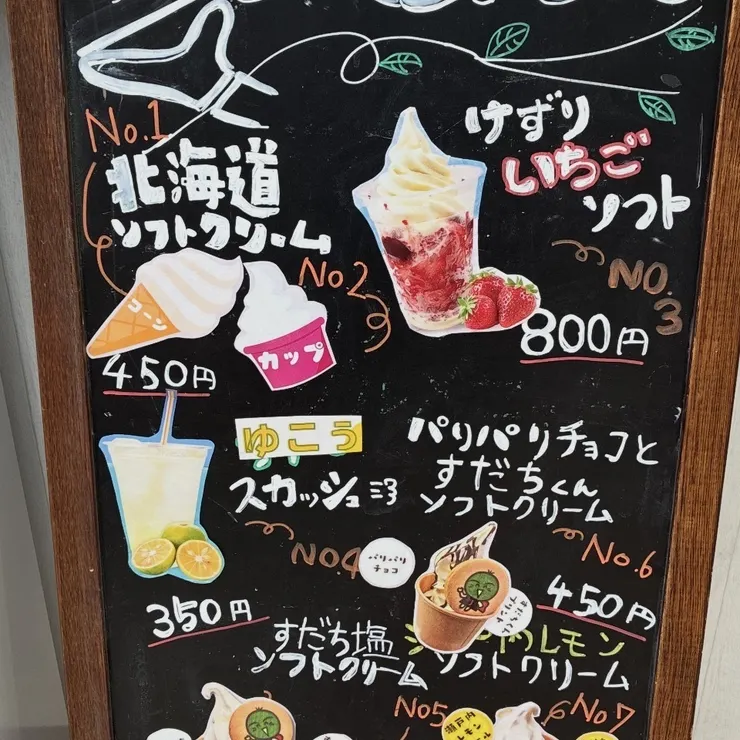 No.1
北海道
ソフトクリーム
コーン
No.2
カップ
450円
けずり
いちご
ソフト
NO.
3
800円
ゆこう
スカッシュ
NO.4
350円
パリパリチョコと
すだちくん
ソフトクリーム
No.6
パリパリ
チョコ
すだちくん
プリント
450円
すだち塩
ソフトクリーム
No5
レモン
ソフトクリーム
No7
瀬戸内
レモン